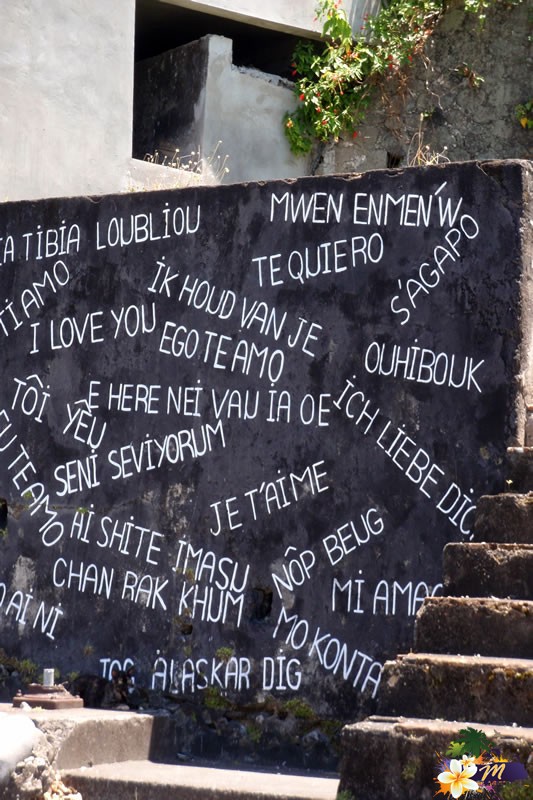 IA TIBIA LOUBLIOU
MWEN ENMEN'W
TI AMO
IK HOUD VAN JE
TE QUIERO
S'AGAPO
I LOVE YOU
EGO TE AMO
OUHIBOUK
TÔI YÊU
E HERE NEI VAU IA OE
ICH LIEBE DIC
EU TE AMO
SENI SEVIYORUM
JE T'AIME
AI SHITE IMASU
NÔP BEUG
CHAN RAK KHUM
MI AMAS
O AI NI
MO KONTA
JOG ALASKAR DIG
M